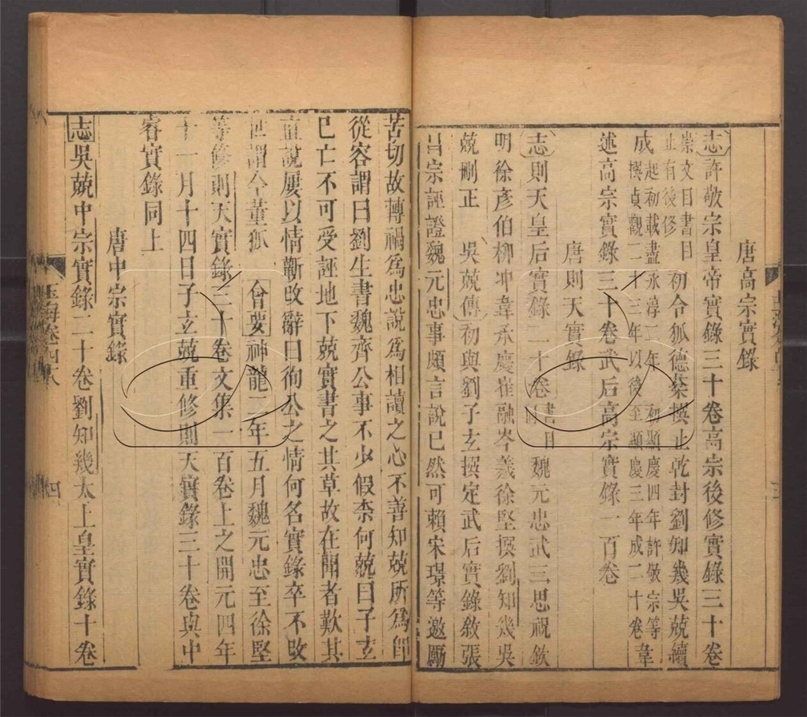 唐高宗實錄
志許敬宗皇帝實錄三十卷高宗後修實錄三十卷
崇文目書目
止有後修
初令狐德棻撰止乾封劉知幾吳兢續
成
起初載盡永淳二年
初顯慶四年許敬宗等
撰貞觀二十三年以後至顯慶三年成二十卷
韋
述高宗實錄三十卷武后高宗實錄一百卷
唐則天實錄
志則天皇后實錄二十卷
書目
同
魏元忠武三思祝欽
明徐彥伯柳冲韋承慶崔融岑羲徐堅撰劉知幾吳
兢刪正
吳兢傳初與劉子玄撰定武后實錄敘張
昌宗誣證魏元忠事頗言說已然可賴宋璟等邀厲
苦切故轉禍爲忠說爲相讀之心不善知兢所爲卽
從容謂曰劉生書魏齊公事不少假柰何兢曰子玄
已亡不可受誣地下兢實書之其草故在聞者歎其
直說屢以情蘄改辭曰徇公之情何名實錄卒不改
世謂今董狐
會要神龍二年五月魏元忠至徐堅
等修則天實錄三十卷文集一百卷上之開元四年
十一月十四日子玄兢重修則天實錄三十卷與中
睿實錄同上
唐中宗實錄
志吳兢中宗實錄二十卷劉知幾太上皇實錄十卷
玉海卷四八
四